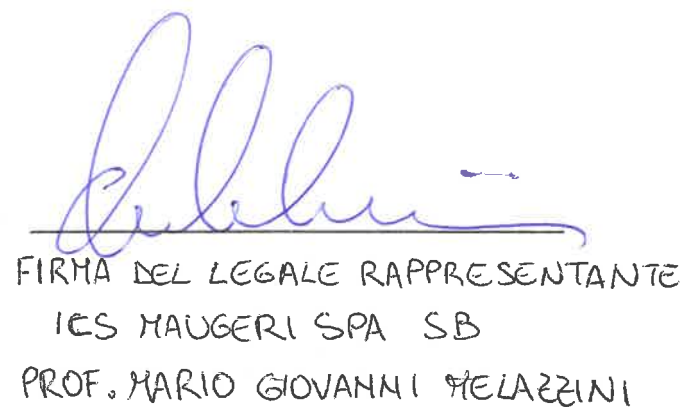 FIRMA DEL LEGALE RAPPRESENTANTE
ICS MAUGERI SPA SB
PROF. MARIO GIOVANNI MELAZZINI